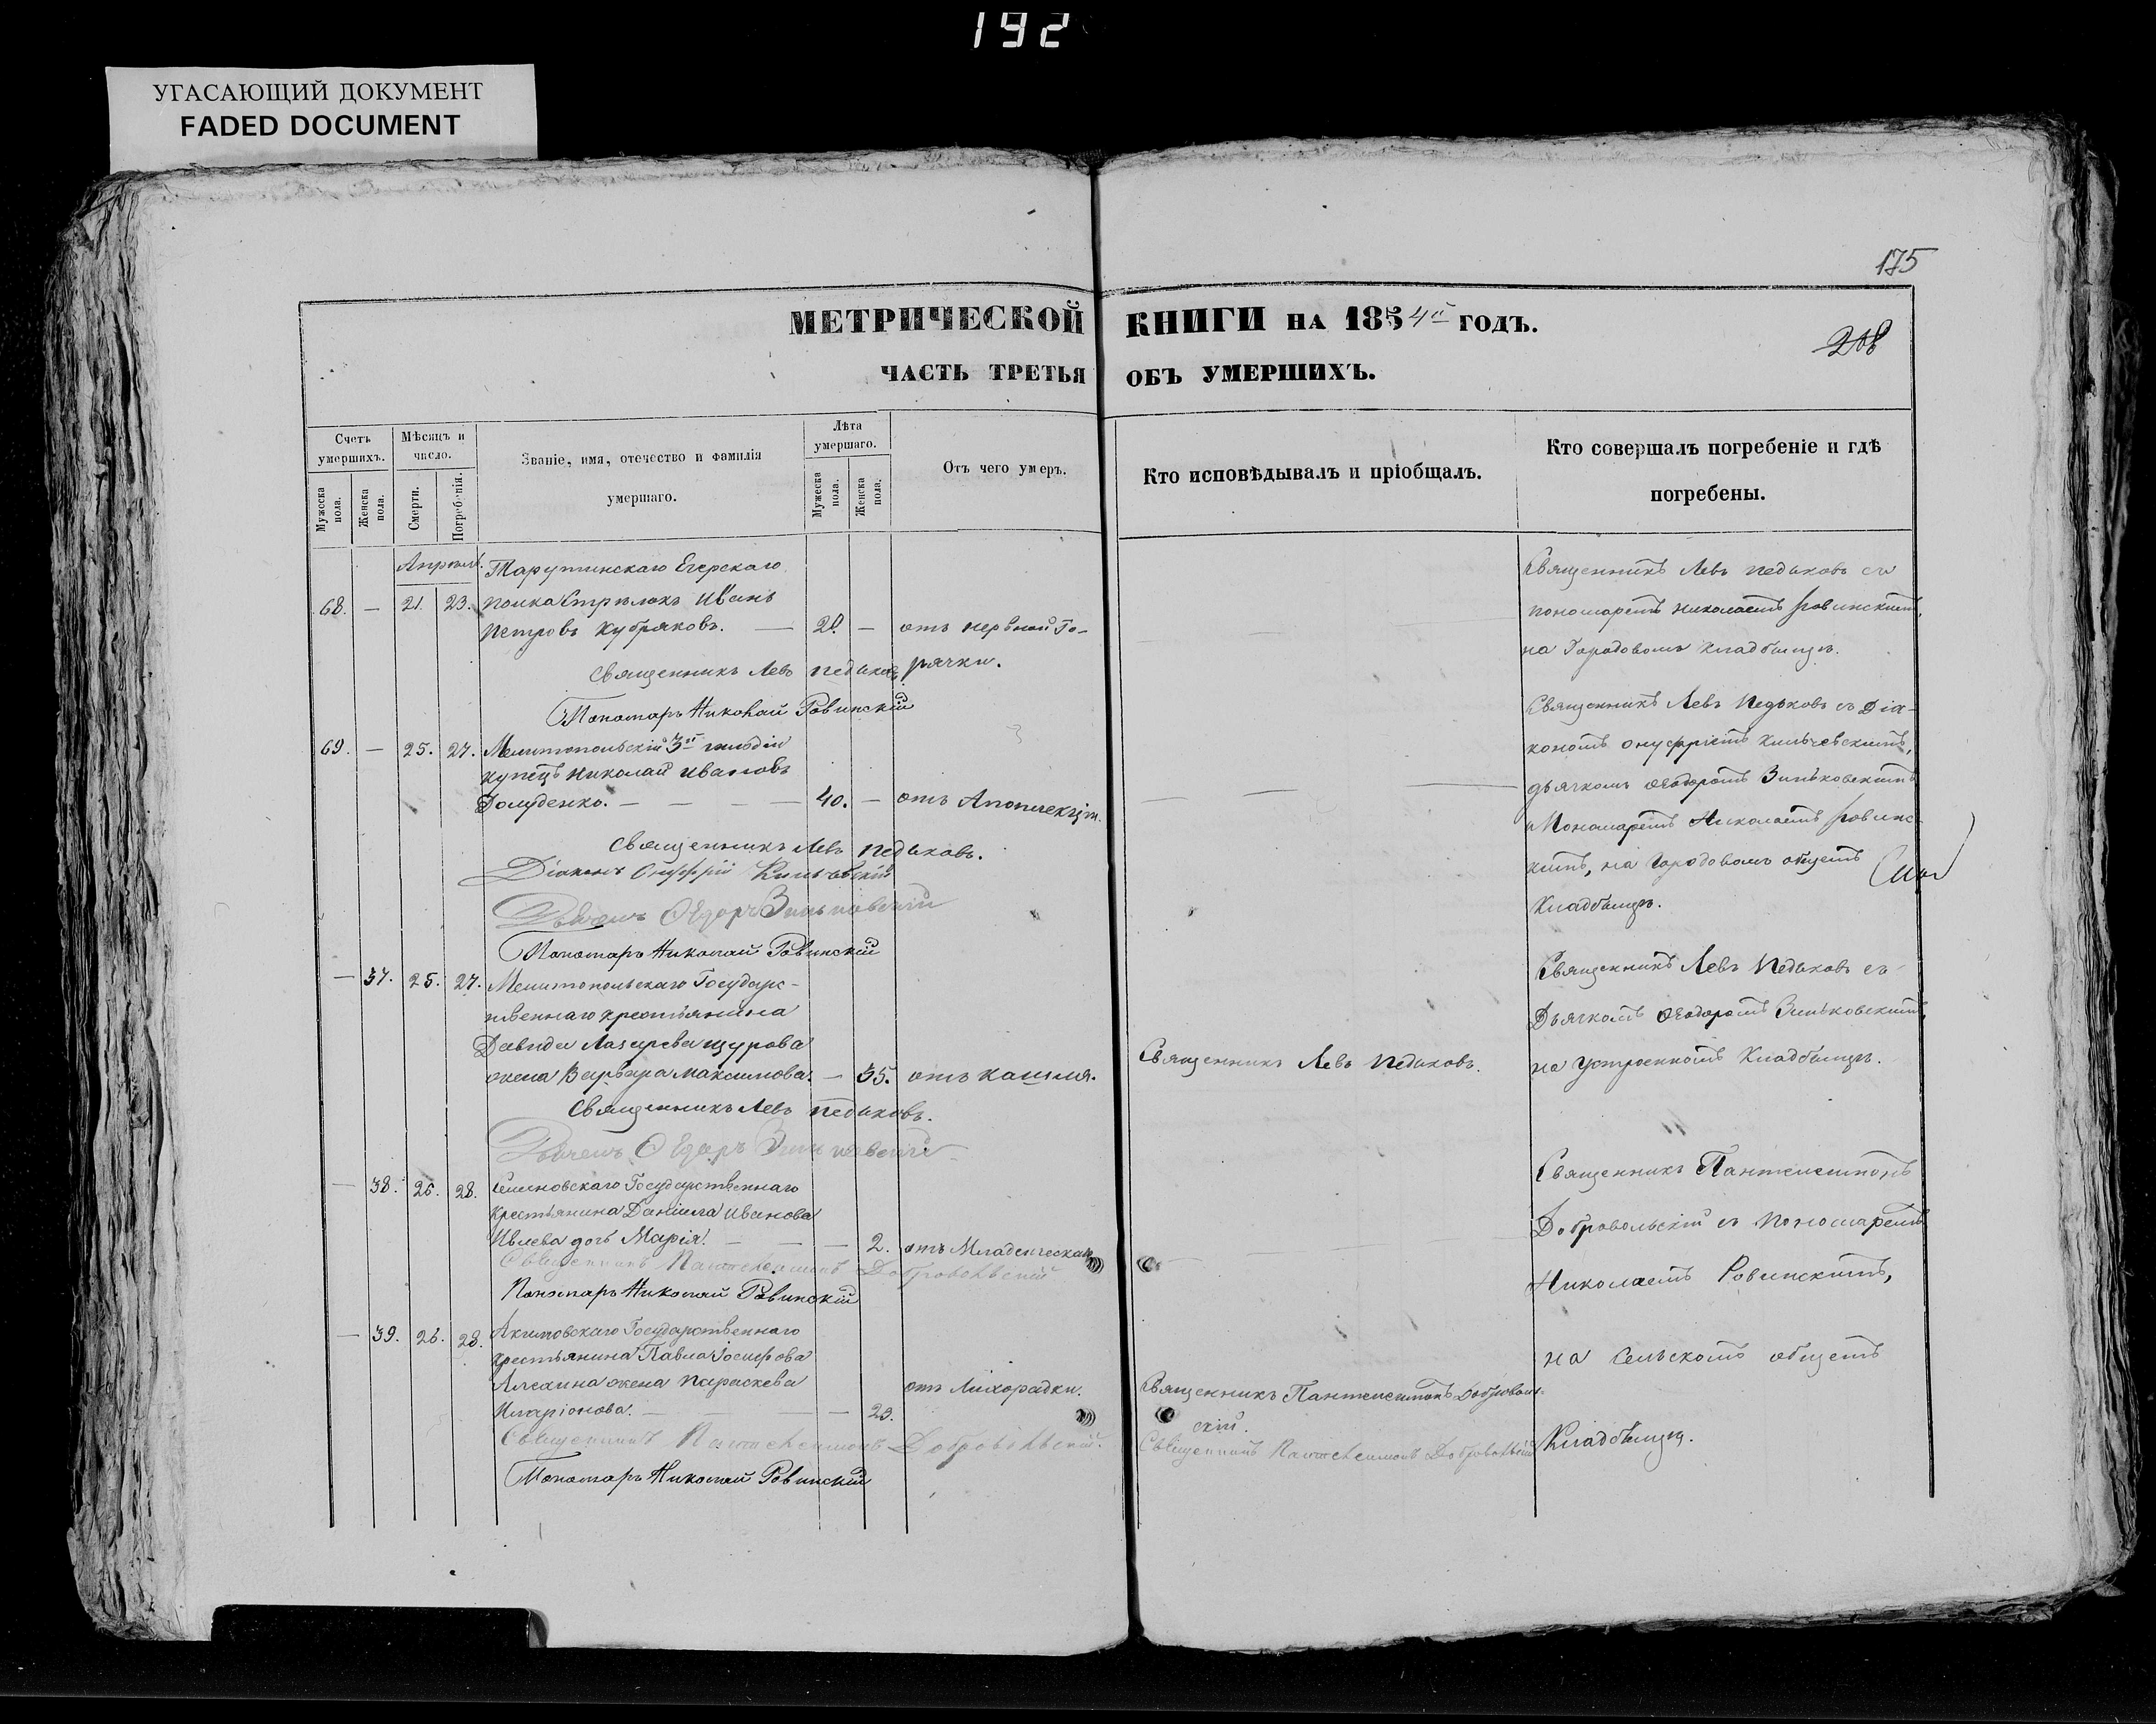 192
УГАСАЮЩИЙ ДОКУМЕНТ
FADED DOCUMENT
175
МЕТРИЧЕСКОЙ КНИГИ НА 1854й ГОДЪ.
208
ЧАСТЬ ТРЕТЬЯ ОБЪ УМЕРШИХЪ.
Счетъ умершихъ.
Мужеска пола.
Женска пола.
Мѣсяцъ и число.
Смерти.
Погребенія.
Званіе, имя, отечество и фамилія
умершаго.
Лѣта умершаго.
Мужеска пола.
Женска пола.
Отъ чего умеръ.
Кто исповѣдывалъ и пріобщалъ.
Кто совершалъ погребеніе и гдѣ
погребены.
Тарутинскаго Егерскаго
68. — 21. 23. полка Стрѣлокъ Иванъ
Петровъ Кубряковъ. — 20. — отъ нервной Го-
рячки.
Священникъ Левъ Педьковъ
Пономарь Николай Ровинскій
Священникъ Левъ Педьковъ съ
пономаремъ Николаемъ Ровинскимъ,
на Городовомъ кладбищѣ.
69. — 25. 27. Мелитопольскій 3й гильдіи
купецъ Николай Ивановъ
Голуденко. — — — 40. — отъ Апоплекціи.
Священникъ Левъ Педьковъ.
Діаконъ Онуфрій
Дьячекъ Ѳедоръ Зиньковскій
Пономарь Николай Ровинскій
Священникъ Левъ Педьковъ съ Діа-
кономъ Онуфріемъ
дьячкомъ Ѳеодоромъ Зиньковскимъ
и Пономаремъ Николаемъ Ровинс-
кимъ, на Городовомъ общемъ
Кладбищѣ.
— 37. 25. 27. Мелитопольскаго Государс-
твеннаго крестьянина
Давида Лазарева Щурова
жена Варвара Максимова. — 35. отъ кашля.
Священникъ Левъ Педьковъ.
Дьячекъ Ѳедоръ Зиньковскій
Священникъ Левъ Педьковъ.
Священникъ Левъ Педьковъ съ
Дьячкомъ Ѳеодоромъ Зиньковскимъ,
на Устроенномъ Кладбищѣ.
— 38. 26. 28. Семеновскаго Государственнаго
крестьянина Даніила Иванова
Ивлева дочь Марія. — — — 2. отъ Младенческой
Священникъ Пантелеимонъ Добровольскій
Пономарь Николай Ровинскій
Священникъ Пантелеимонъ
Добровольскій съ Пономаремъ
Николаемъ Ровинскимъ,
на Сельскомъ общемъ
Кладбищѣ.
— 39. 26. 28. Акимовскаго Государственнаго
крестьянина Павла Іосифова
Алехина жена Параскева
Иларіонова. — — — 23. отъ Лихорадки.
Священникъ Пантелеимонъ Добровольскій.
Пономарь Николай Ровинскій
Священникъ Пантелеимонъ Доброволь-
скій.
Священникъ Пантелеимонъ Добровольскій